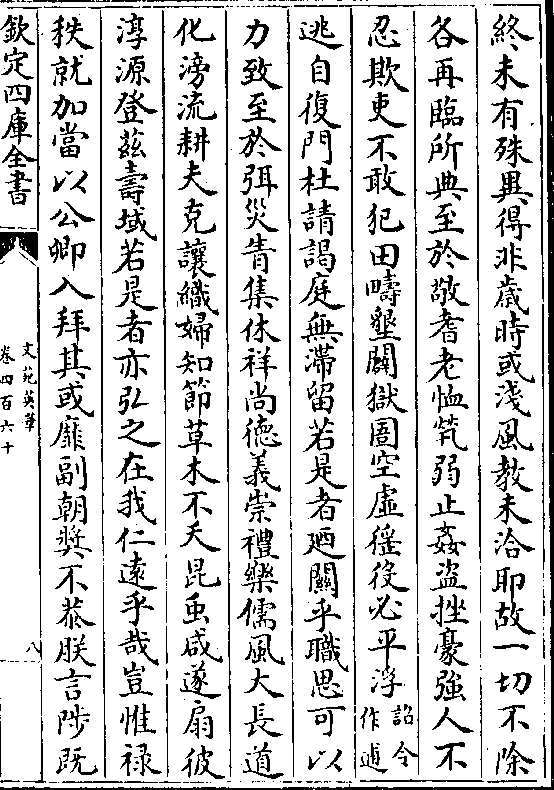 終未有殊異得非歲時或淺風教未洽耶故一切不除
各再臨所典至於敬耆老恤惸弱止姦盜挫豪強人不
忍欺吏不敢犯田疇墾闢獄圄空虛徭役必平浮詔令作逋
逃自復門杜請謁庭無滯留若是者廼關乎職思可以
力致至於弭災眚集休祥尚德義崇禮樂儒風大長道
化滂流耕夫克讓織婦知節草木不夭昆虫咸遂扇彼
淳源登茲壽域若是者亦弘之在我仁遠乎哉豈惟祿
秩就加當以公卿入拜其或靡副朝奬不恭朕言陟既
欽定四庫全書
文苑英華
卷四百六十
八